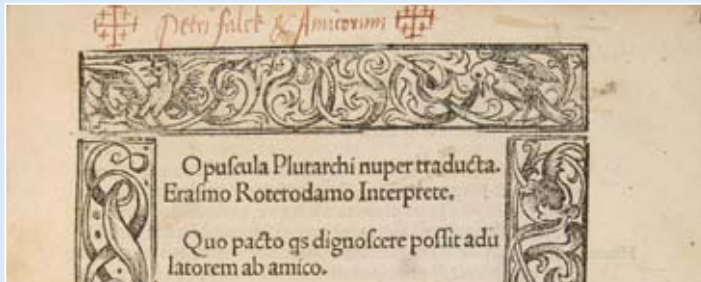 Petri falck & Amicorum
Opuſcula Plutarchi nuper traducta.
Eraſmo Roterodamo Interprete.
Quo pacto qs dignoſcere poſſit adu
latorem ab amico.